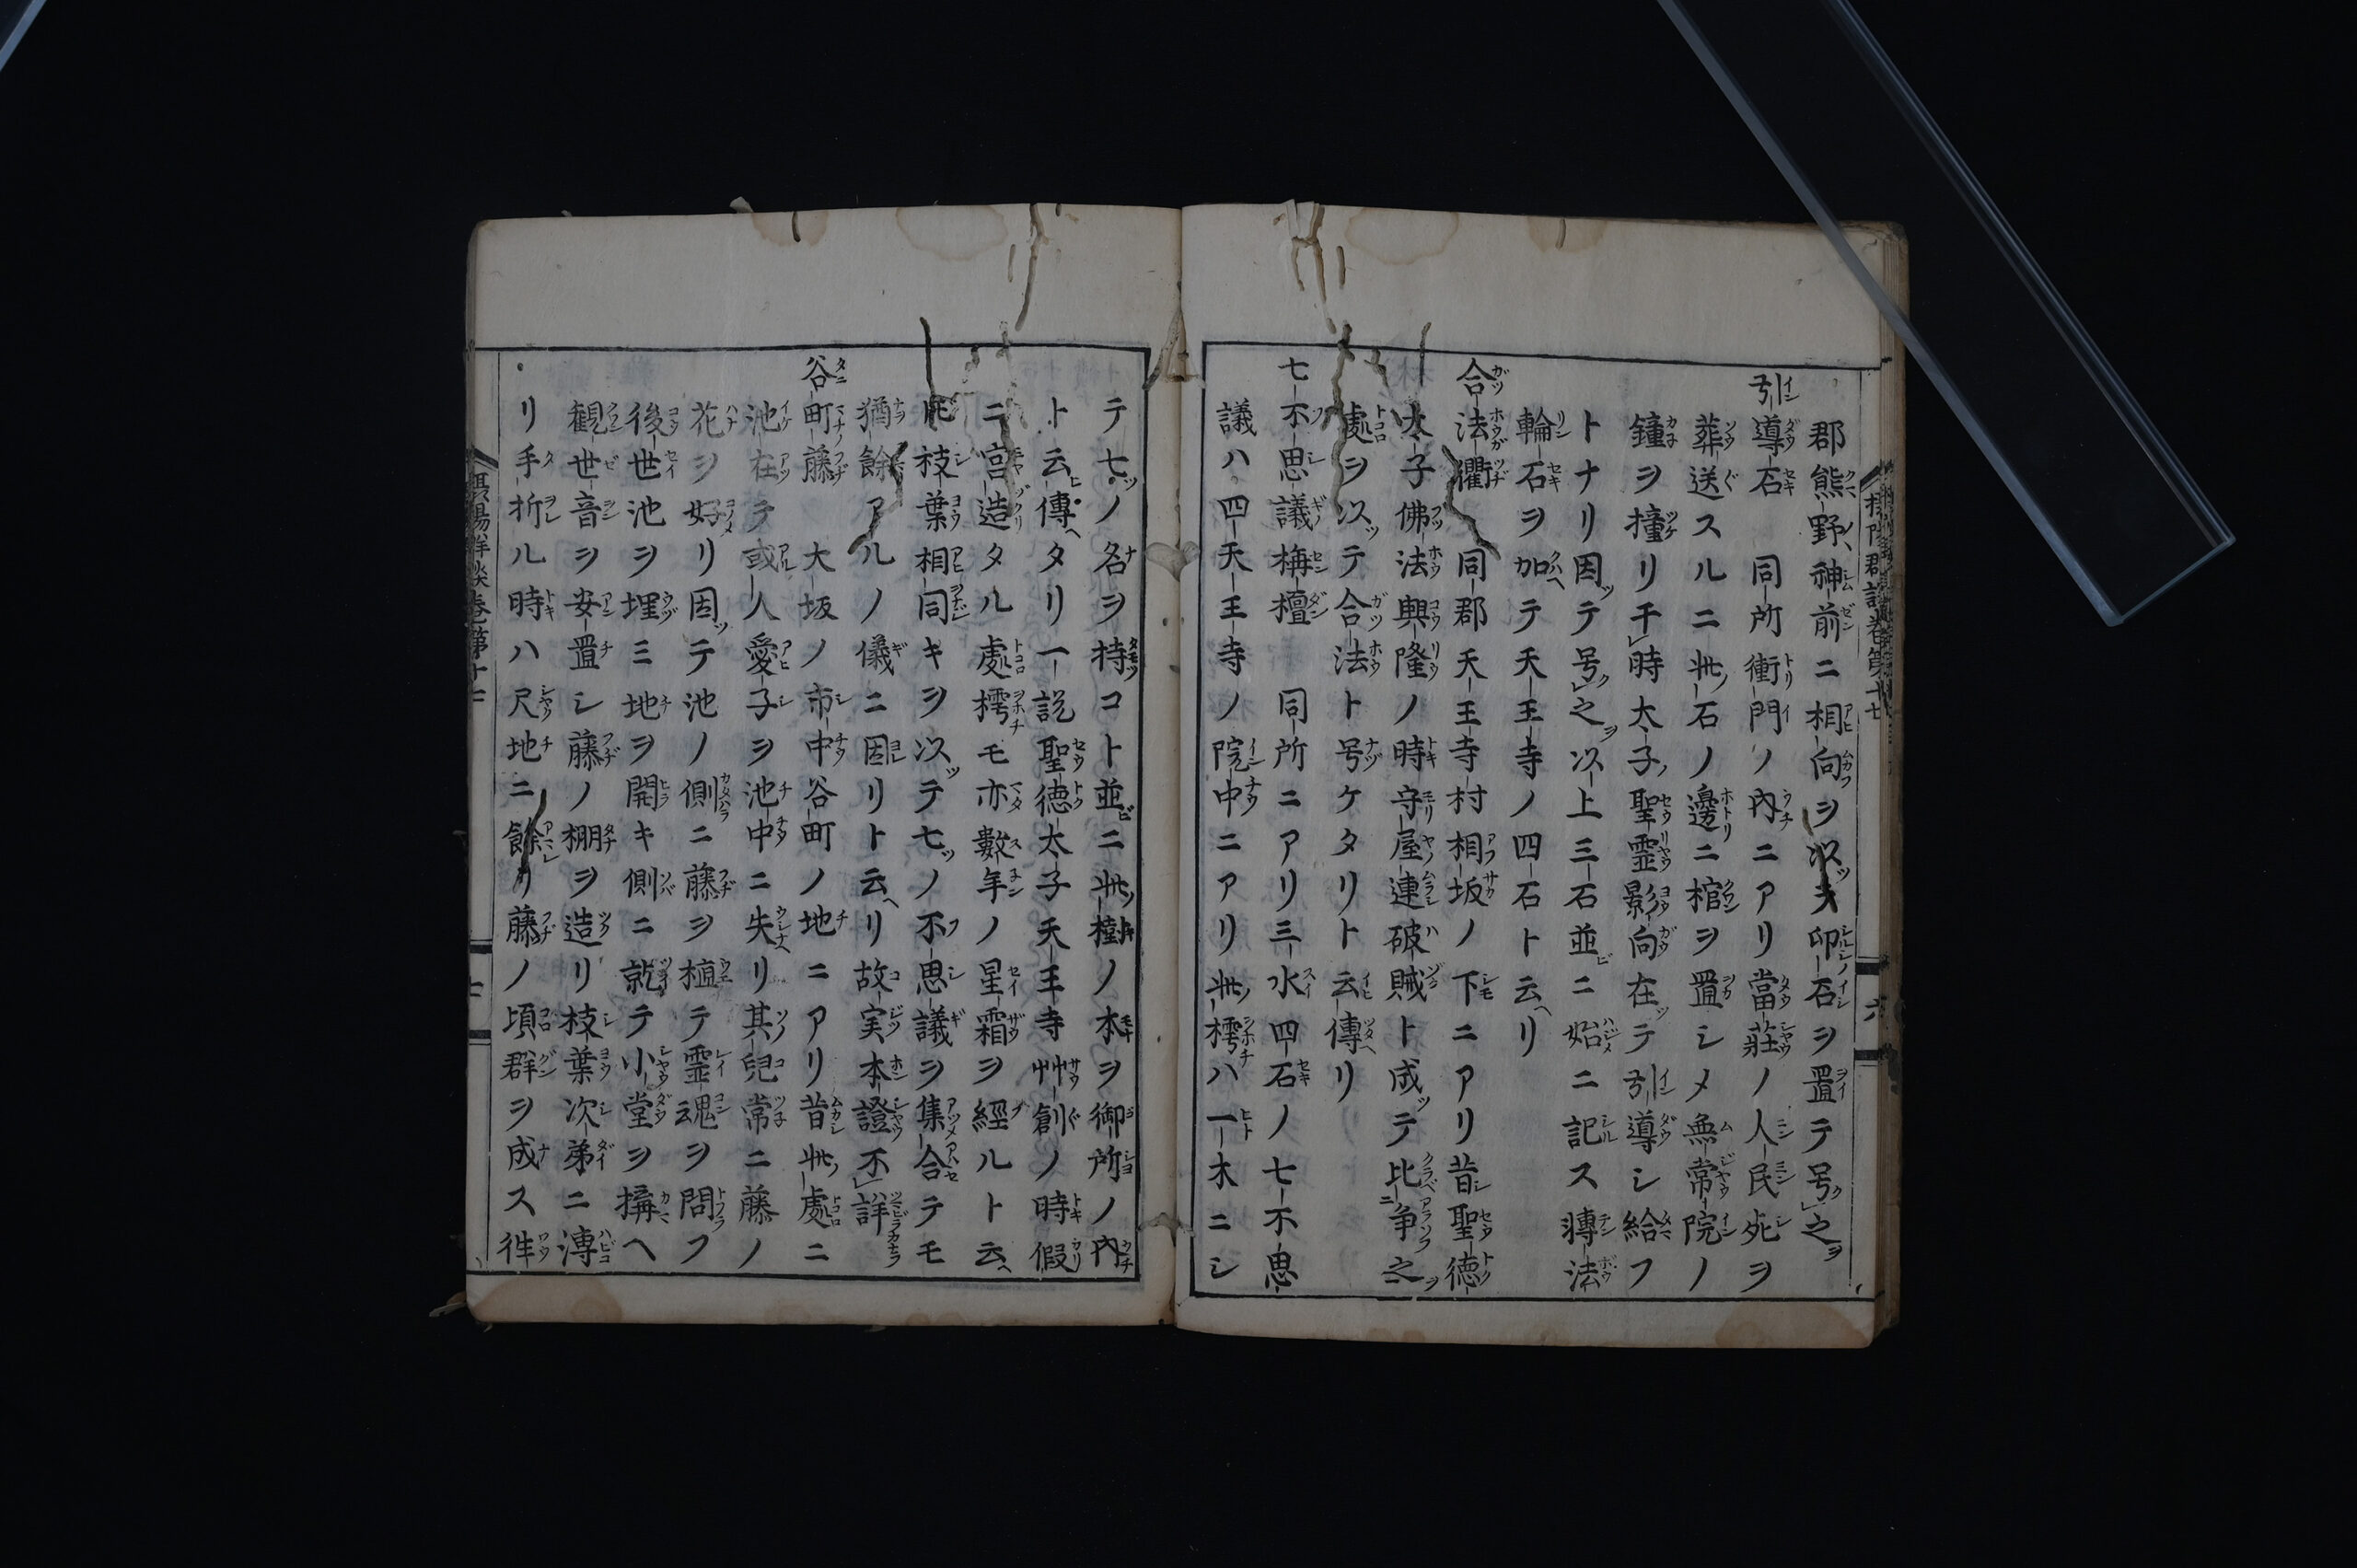 郡熊野神前ニ相向ヲ以夫卬石ヲ置テ号之
引導石 同所衝門ノ內ニアリ當莊ノ人民死ヲ
葬送スルニ此石ノ邊ニ棺ヲ置シメ無常院ノ
鐘ヲ撞リ千時太子聖霊影向在テ引導シ給フ
トナリ因テ号之以上三石並ニ始ニ記ス轉法
輪石ヲ加テ天王寺ノ四石ト云リ
合法衢 同郡天王寺村相坂ノ下ニアリ昔聖德
太子佛法興隆ノ時守屋連破賊ト成テ比争之
處ヲ以テ合法ト号ケタリト云傳リ
七不思議栴檀 同所ニアリ三水四石ノ七不思
議ハ四天王寺ノ院中ニアリ此樗ハ一木ニシ
テ七ノ名ヲ持コト並ニ此樹ノ本ヲ御所ノ內
ト云傳タリ一説聖德太子天王寺艸創ノ時假
ニ宮造タル處樗モ亦數年ノ星霜ヲ經ルト云
枝葉相同キヲ以テ七ノ不思議ヲ集合テモ
猶餘アルノ儀ニ因リト云リ故実本證不詳
谷町藤 大坂ノ市中谷町ノ地ニアリ昔此處ニ
池在テ或人愛子ヲ池中ニ失リ其兒常ニ藤ノ
花ヲ好リ因テ池ノ側ニ藤ヲ植テ霊魂ヲ問フ
後世池ヲ埋ミ地ヲ開キ側ニ就テ小堂ヲ搆ヘ
觀世音ヲ安置シ藤ノ棚ヲ造リ枝葉次弟ニ溥
リ手折ル時ハ尺地ニ餘リ藤ノ頃群ヲ成ス徃
摂陽群談卷第十七
六
七